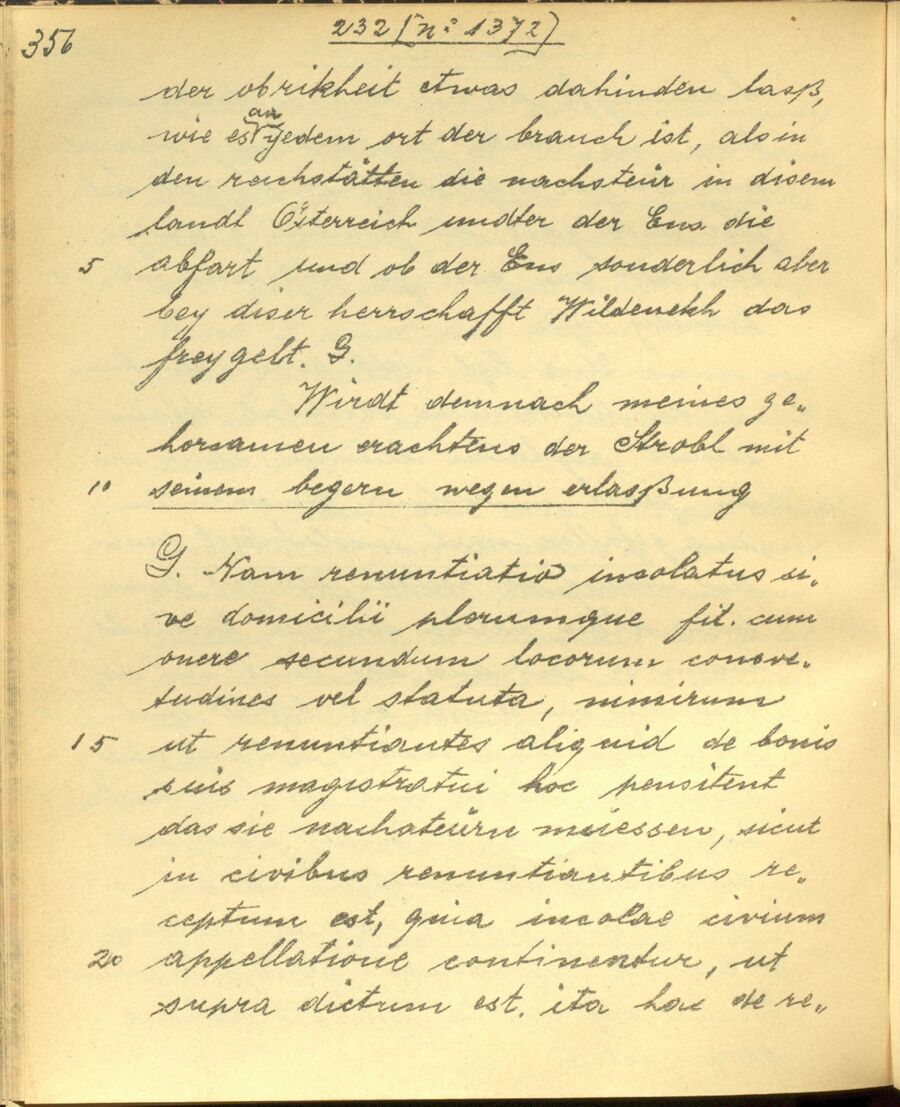 356
232 [nº 1372]
der obrikheit etwas dahinden lasß,
an
wie es jedem ort der brauch ist, als in
den reichstätten die nachsteür in disem
landt Össterreich undter der Ens die
5 abfart und ob der Ens sonderlich aber
bey diser herrschafft Wildenekh das
freygelt. G.
Wirdt demnach meines ge„
horsamen erachtens der Strobl mit
10 seinem begern wegen erlasßung
G. Nam renuntiatio incolatus si„
ve domicilii plerumque fit. cum
onere secundum locorum consve„
tudines vel statuta, nimirum
15 ut renuntiantes aliquid de bonis
suis magistratui hoc pensitent
das sie nachsteürn müessen, sicut
in civibus renuntiantibus re„
ceptum est, quia incolae civium
20 appellatione continentur, ut
supra dictum est. ita hac de re„